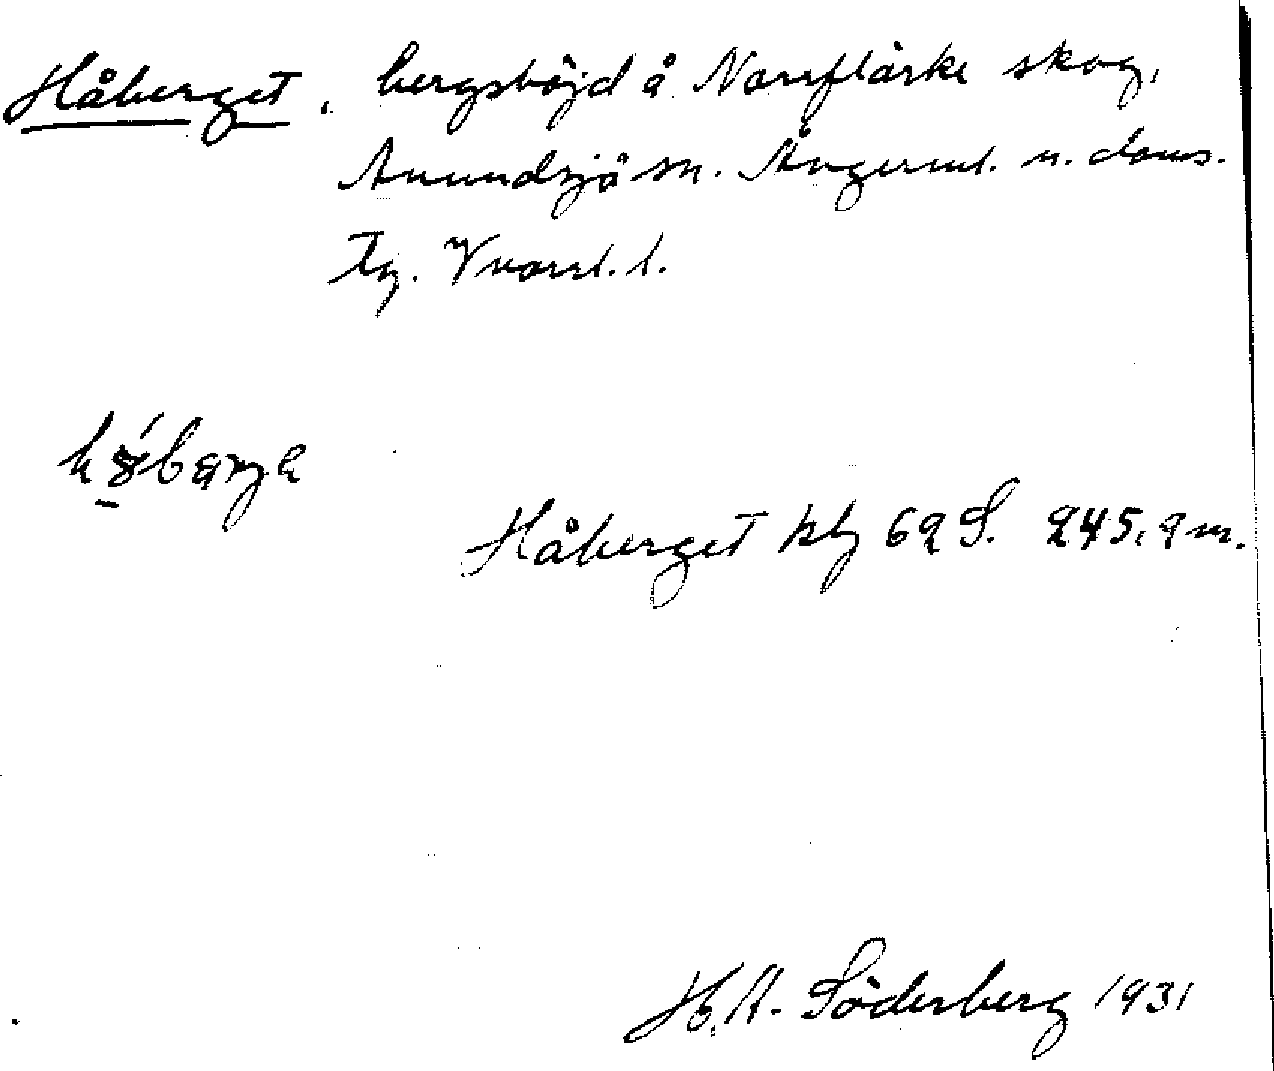 Håberget, bergshöjd å Norrflärke skog,
Anundsjö sn. Ångerml. n. doms.
tg. Vnorrl. l.
Håberget kbl 62 S. 245,9 m.
H. A. Söderberg 1931